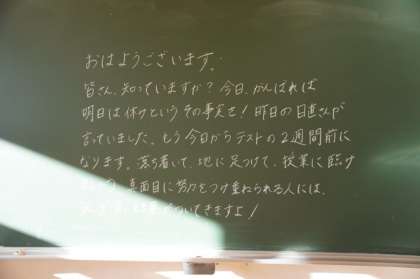 おはようございます。
皆さん、知っていますか?今日、がんばれば
明日は休みというその事実を!昨日の日直さんが
言っていました。もう今日からテストの2週間前に
なります。落ち着いて、地に足つけて、授業に臨み
真面目に努力をつけ重ねられる人には、
ついてきますよ!